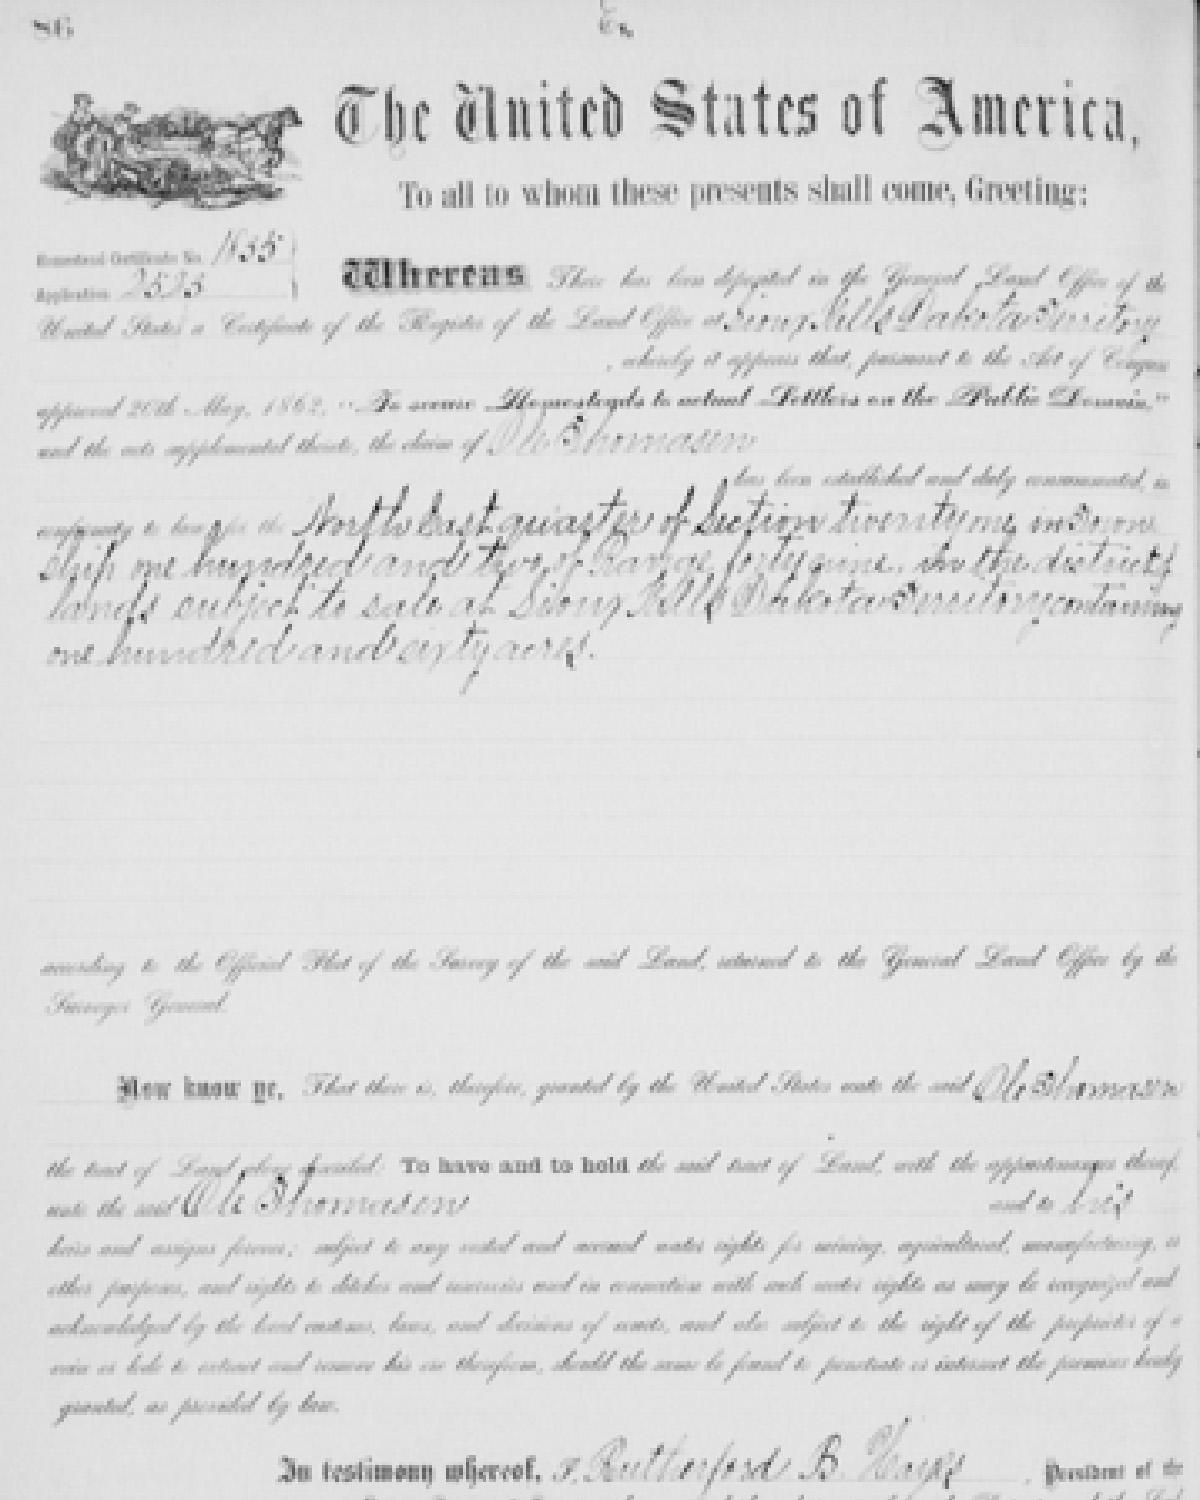 86
The United States of America,
To all to whom these presents shall come, Greeting:
Homestead Certificate No. 1835
Application 2525
Whereas There has been deposited in the General Land Office of the
United States a Certificate of the Register of the Land Office at Sioux Falls Dakota Territory
, whereby it appears that, pursuant to the Act of Congress
approved 20th May, 1862, "To secure Homesteads to actual Settlers on the Public Domain,"
and the acts supplemental thereto, the claim of Ole Thomasen
has been established and duly consummated, in
conformity to law for the North East quarter of Section twenty one, in Town
ship one hundred and two, of Range forty nine, in the district of
lands subject to sale at Sioux Falls Dakota Territory containing
one hundred and sixty acres.
according to the Official Plat of the Survey of the said Land, returned to the General Land Office by the
Surveyor General.
Now know ye, That there is, therefore, granted by the United States unto the said Ole Thomasen
the tract of Land above described: To have and to hold the said tract of Land, with the appurtenances thereof,
unto the said Ole Thomasen and to his
heirs and assigns forever; subject to any vested and accrued water rights for mining, agricultural, manufacturing, or
other purposes, and rights to ditches and reservoirs used in connection with such water rights as may be recognized and
acknowledged by the local customs, laws, and decisions of courts, and also subject to the right of the proprietor of a
vein or lode to extract and remove his ore therefrom, should the same be found to penetrate or intersect the premises hereby
granted, as provided by law.
In testimony whereof, I, Rutherford B. Hayes , President of the